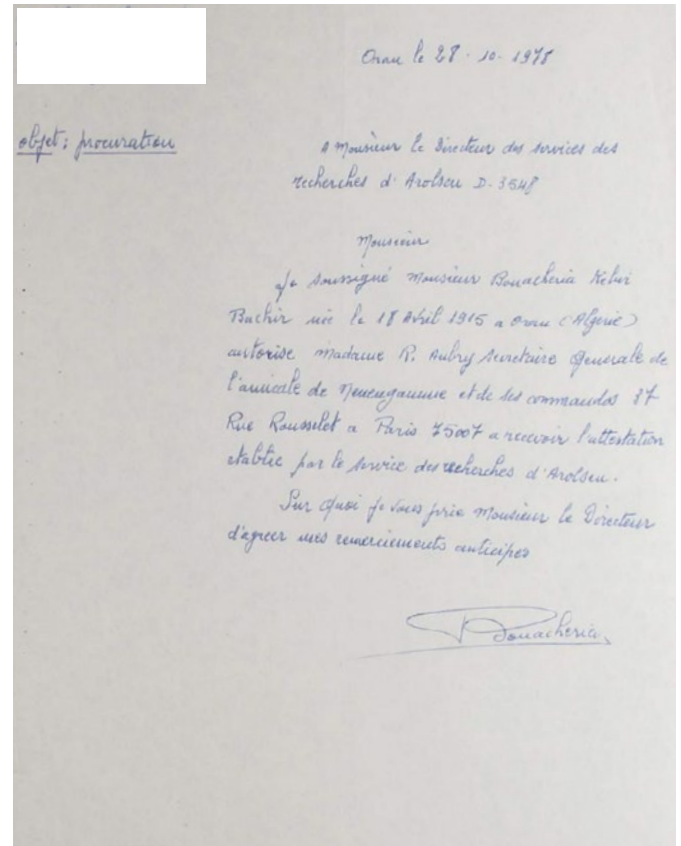 Oran le 28-10-1978
objet: procuration
A Monsieur le Directeur des services des
recherches d'Arolsen D-3548
Monsieur
Je soussigné Monsieur Bouacheria Kebir
Bachir née le 18 Avril 1915 a oran (Algerie)
autorise madame R. Aubry Secretaire Generale de
l'amicale de Neuengamme et de ses commandos 37
Rue Rousselet a Paris 75007 a recevoir l'attestation
établie par le service des recherches d'Arolsen.
Sur quoi je vous prie Monsieur le Directeur
d'agreer mes remerciements anticipes
Bouacheria